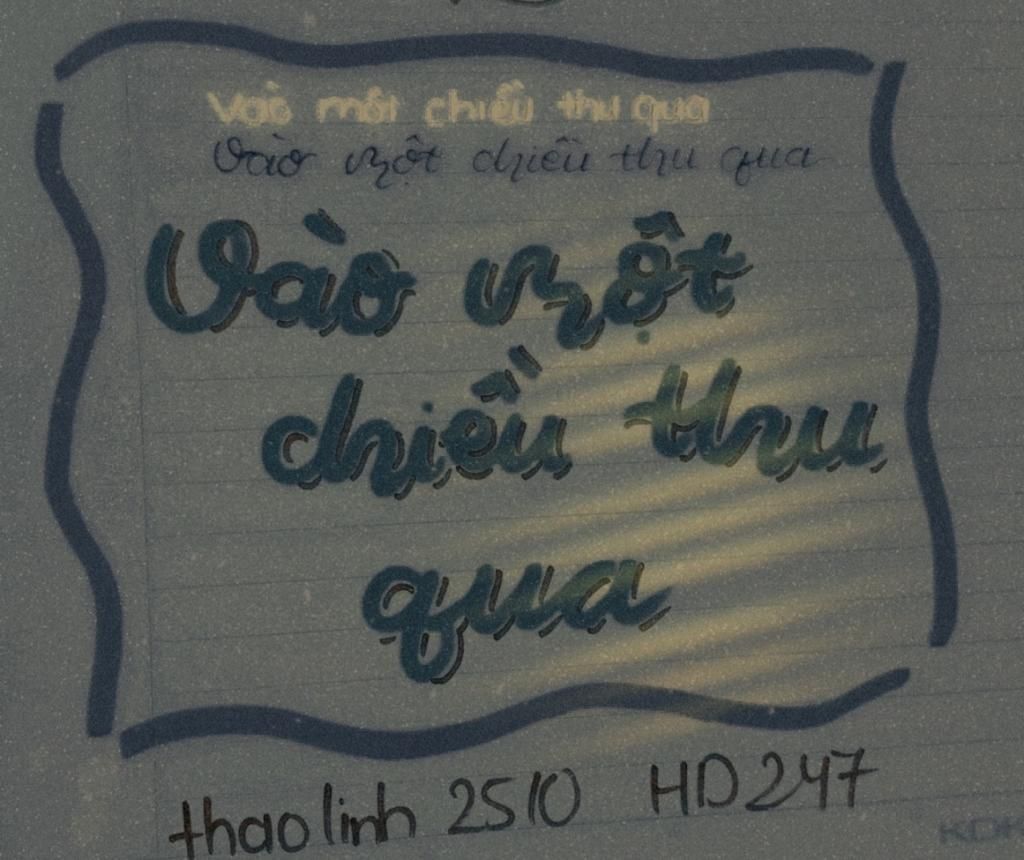 vào một chiều thu qua
vào một chiều thu qua
Vào một
chiều thu
qua
thaolinh 2510 HD247